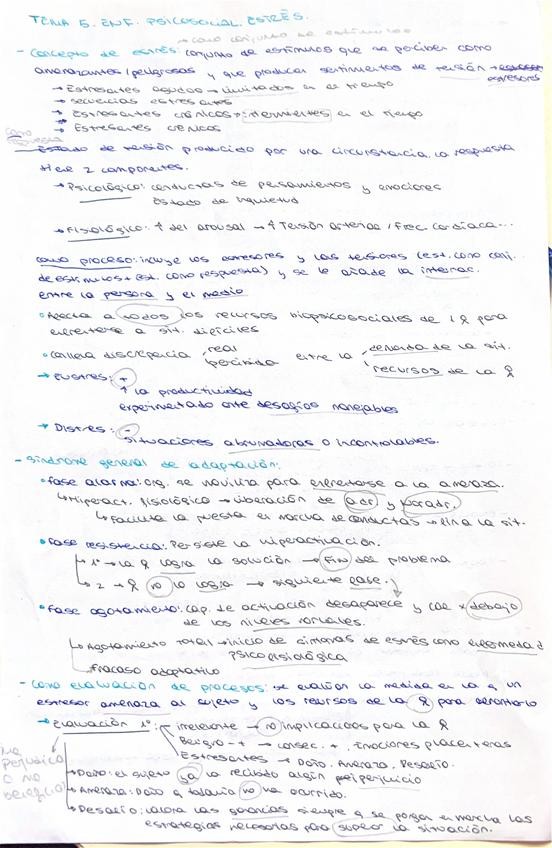 TEMA 5. ENF. PSICOSOCIAL. ESTRÉS.
→ como conjunto de estímulos
- Concepto de estrés: conjunto de estímulos que se perciben como
amenazantes/peligrosos y que producen sentimientos de tensión →
estresores
→ Estresantes agudos → limitados en el tiempo
→ secuencias estresantes
→ Estresantes crónicos intermitentes en el tiempo
→ Estresantes crónicos
Como respuesta
Estado de tensión producido por una circunstancia, la respuesta
tiene 2 componentes.
→ Psicológico: conductas de pensamientos y emociones
Estado de inquietud
→ Fisiológico: ↑ del arousal → ↑ Tensión arterial / Frec. cardíaca...
como proceso: incluye los estresores y las tensiones (est. como conj.
de estímulos + est. como respuesta) y se le añade la interac.
entre la persona y el medio
• Afecta a todos los recursos biopsicosociales de 1 para
enfrentarse a sit. difíciles
• Conlleva discrepancia real percibida entre la demanda de la sit.
recursos de la
→ Eustres: +
↑ la productividad
experimentado ante desafíos manejables
→ Distres: -
situaciones abrumadoras o incontrolables.
- Síndrome general de adaptación:
• Fase alarma: org. se moviliza para enfrentarse a la amenaza.
↳ Hiperact. fisiológico → liberación de adr y noradr.
↳ Facilita la puesta en marcha de conductas → fin a la sit.
• Fase resistencia: Persiste la hiperactivación.
↳ 1º → la logra la solución → Fin del problema
↳ 2 → no lo logra → siguiente fase.
• Fase agotamiento: cap. de activación desaparece y cae x debajo
de los niveles normales.
↳ Agotamiento total → inicio de síntomas de estrés como enfermedad
psicofisiológica
↳ Fracaso adaptativo
- Como evaluación de procesos: se evalúan la medida en la q un
estresor amenaza al sujeto y los recursos de la para afrontarlo
→ Evaluación 1ª: irrelevante → no implicaciones para la
Benigno - + → consec. +, Emociones placenteras
Estresantes → Daño, Amenaza, Desafío.
Ni perjudica o no beneficia
→ Daño: el sujeto ya ha recibido algún perjuicio
→ Amenaza: Daño q todavía no ha ocurrido.
→ Desafío: valora las ganancias siempre q se pongan en marcha las
estrategias necesarias para superar la situación.